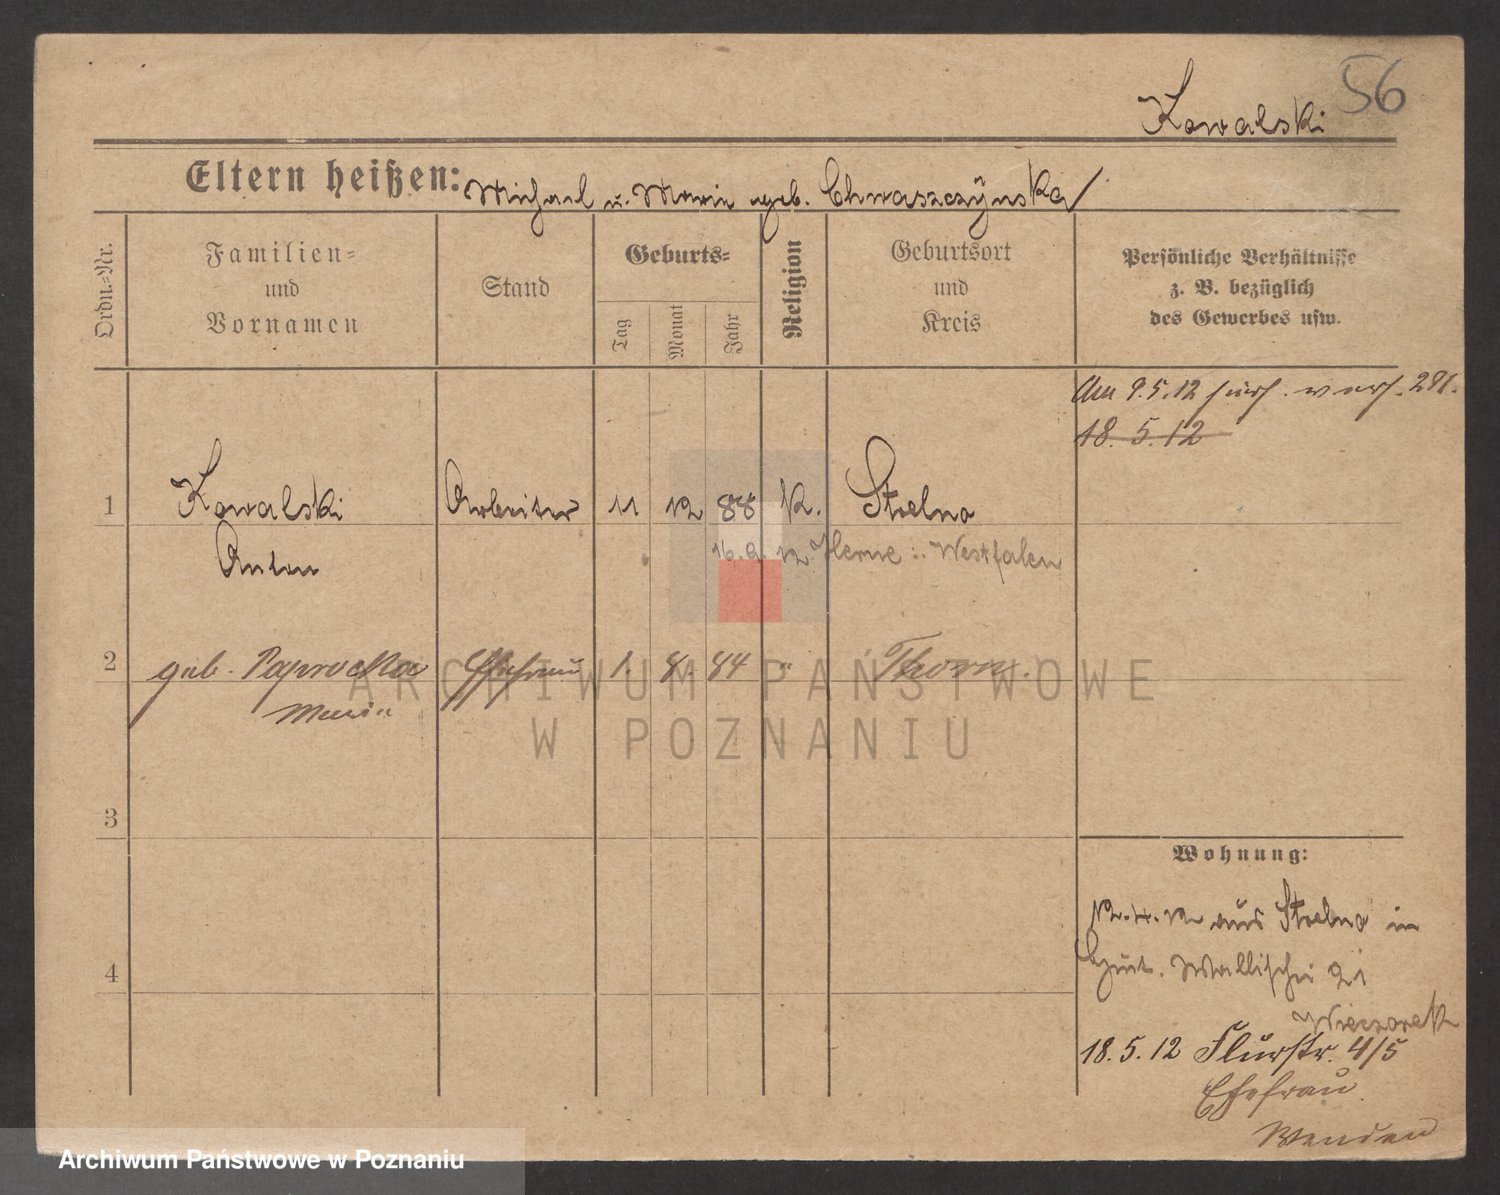 56
Kowalski
Eltern heißen: Michael u. Marie geb. Chwaszczýnska
Ordn.=Nr.
Familien=
und
Vornamen
Stand
Geburts=
Tag
Monat
Jahr
Religion
Geburtsort
und
Kreis
Persönliche Verhältnisse
z. B. bezüglich
des Gewerbes usw.
Am 9.5.12 291.
18.5.12
1 Kowalski Arbeiter 11 12 88 K. Strelno
Anton 16.9.12. Herne i. Westfalen
2 geb. Paprocka Ehefrau 1. 8. 84 " Thorn.
Maria
3
4
Wohnung:
12.4.12 aus Strelno in
Wallischei 21
Wieczorek
18.5.12 Flurstr. 4/5
Ehefrau
ARCHIWUM PAŃSTWOWE
W POZNANIU
Archiwum Państwowe w Poznaniu